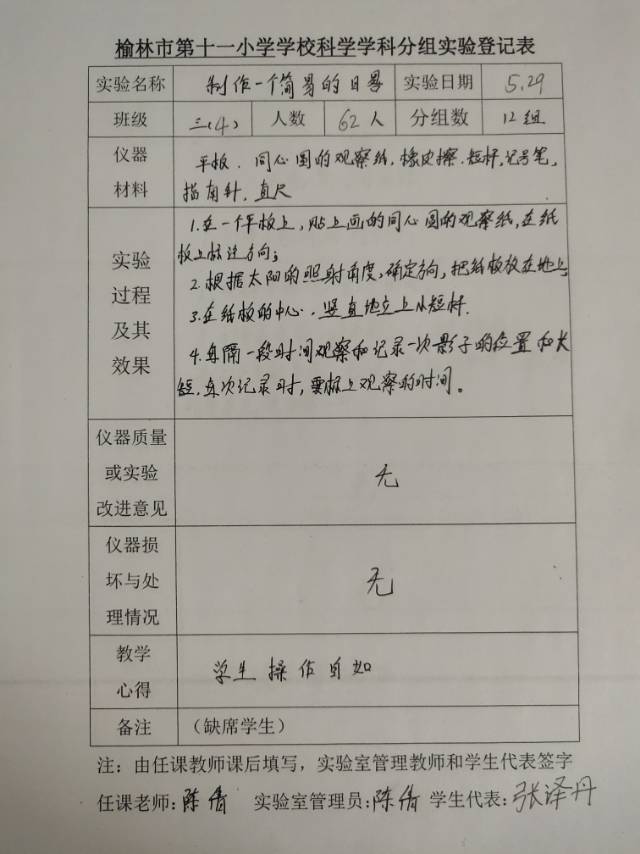 榆林市第十一小学学校科学学科分组实验登记表
实验名称 制作一个简易的日晷 实验日期 5.29
班级 三(4) 人数 62人 分组数 12组
仪器材料 平板.同心圆的观察纸,橡皮擦.短杆,记号笔,
指南针.直尺
实验过程及其效果 1.在一个平板上,贴上画的同心圆的观察纸,在纸
板上标注方向;
2.根据太阳的照射角度,确定方向,把纸板放在地上
3.在纸板的中心,竖直地立上小短杆.
4.每隔一段时间观察和记录一次影子的位置和长
短,每次记录时,要标上观察的时间。
仪器质量或实验改进意见 无
仪器损坏与处理情况 无
教学心得 学生操作自如
备注 (缺席学生)
注:由任课教师课后填写,实验室管理教师和学生代表签字
任课老师:陈倩 实验室管理员:陈倩 学生代表:张泽丹